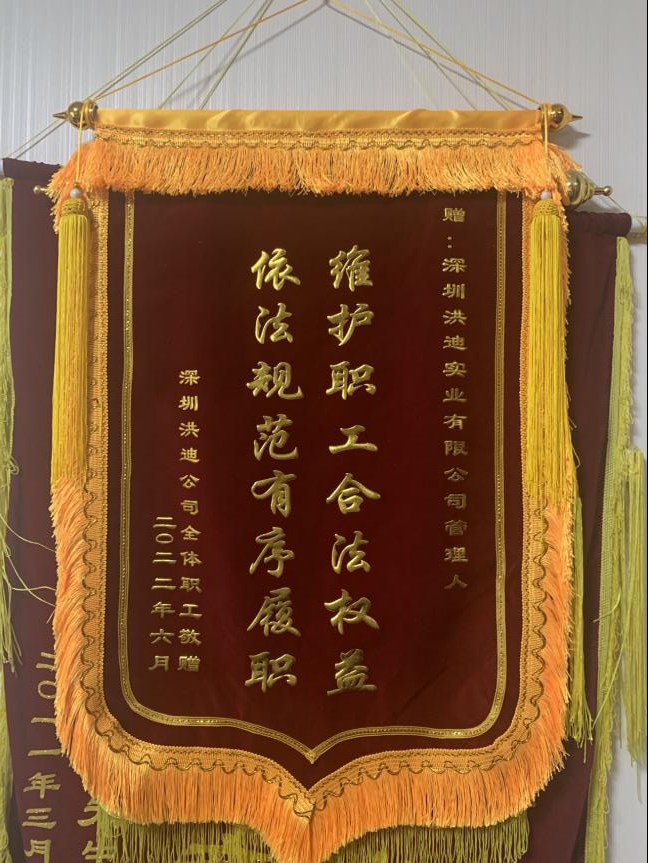 赠：深圳洪迪实业有限公司管理人
维护职工合法权益
依法规范有序履职
深圳洪迪公司全体职工敬赠
二〇二二年六月
二〇二一年三月
先生